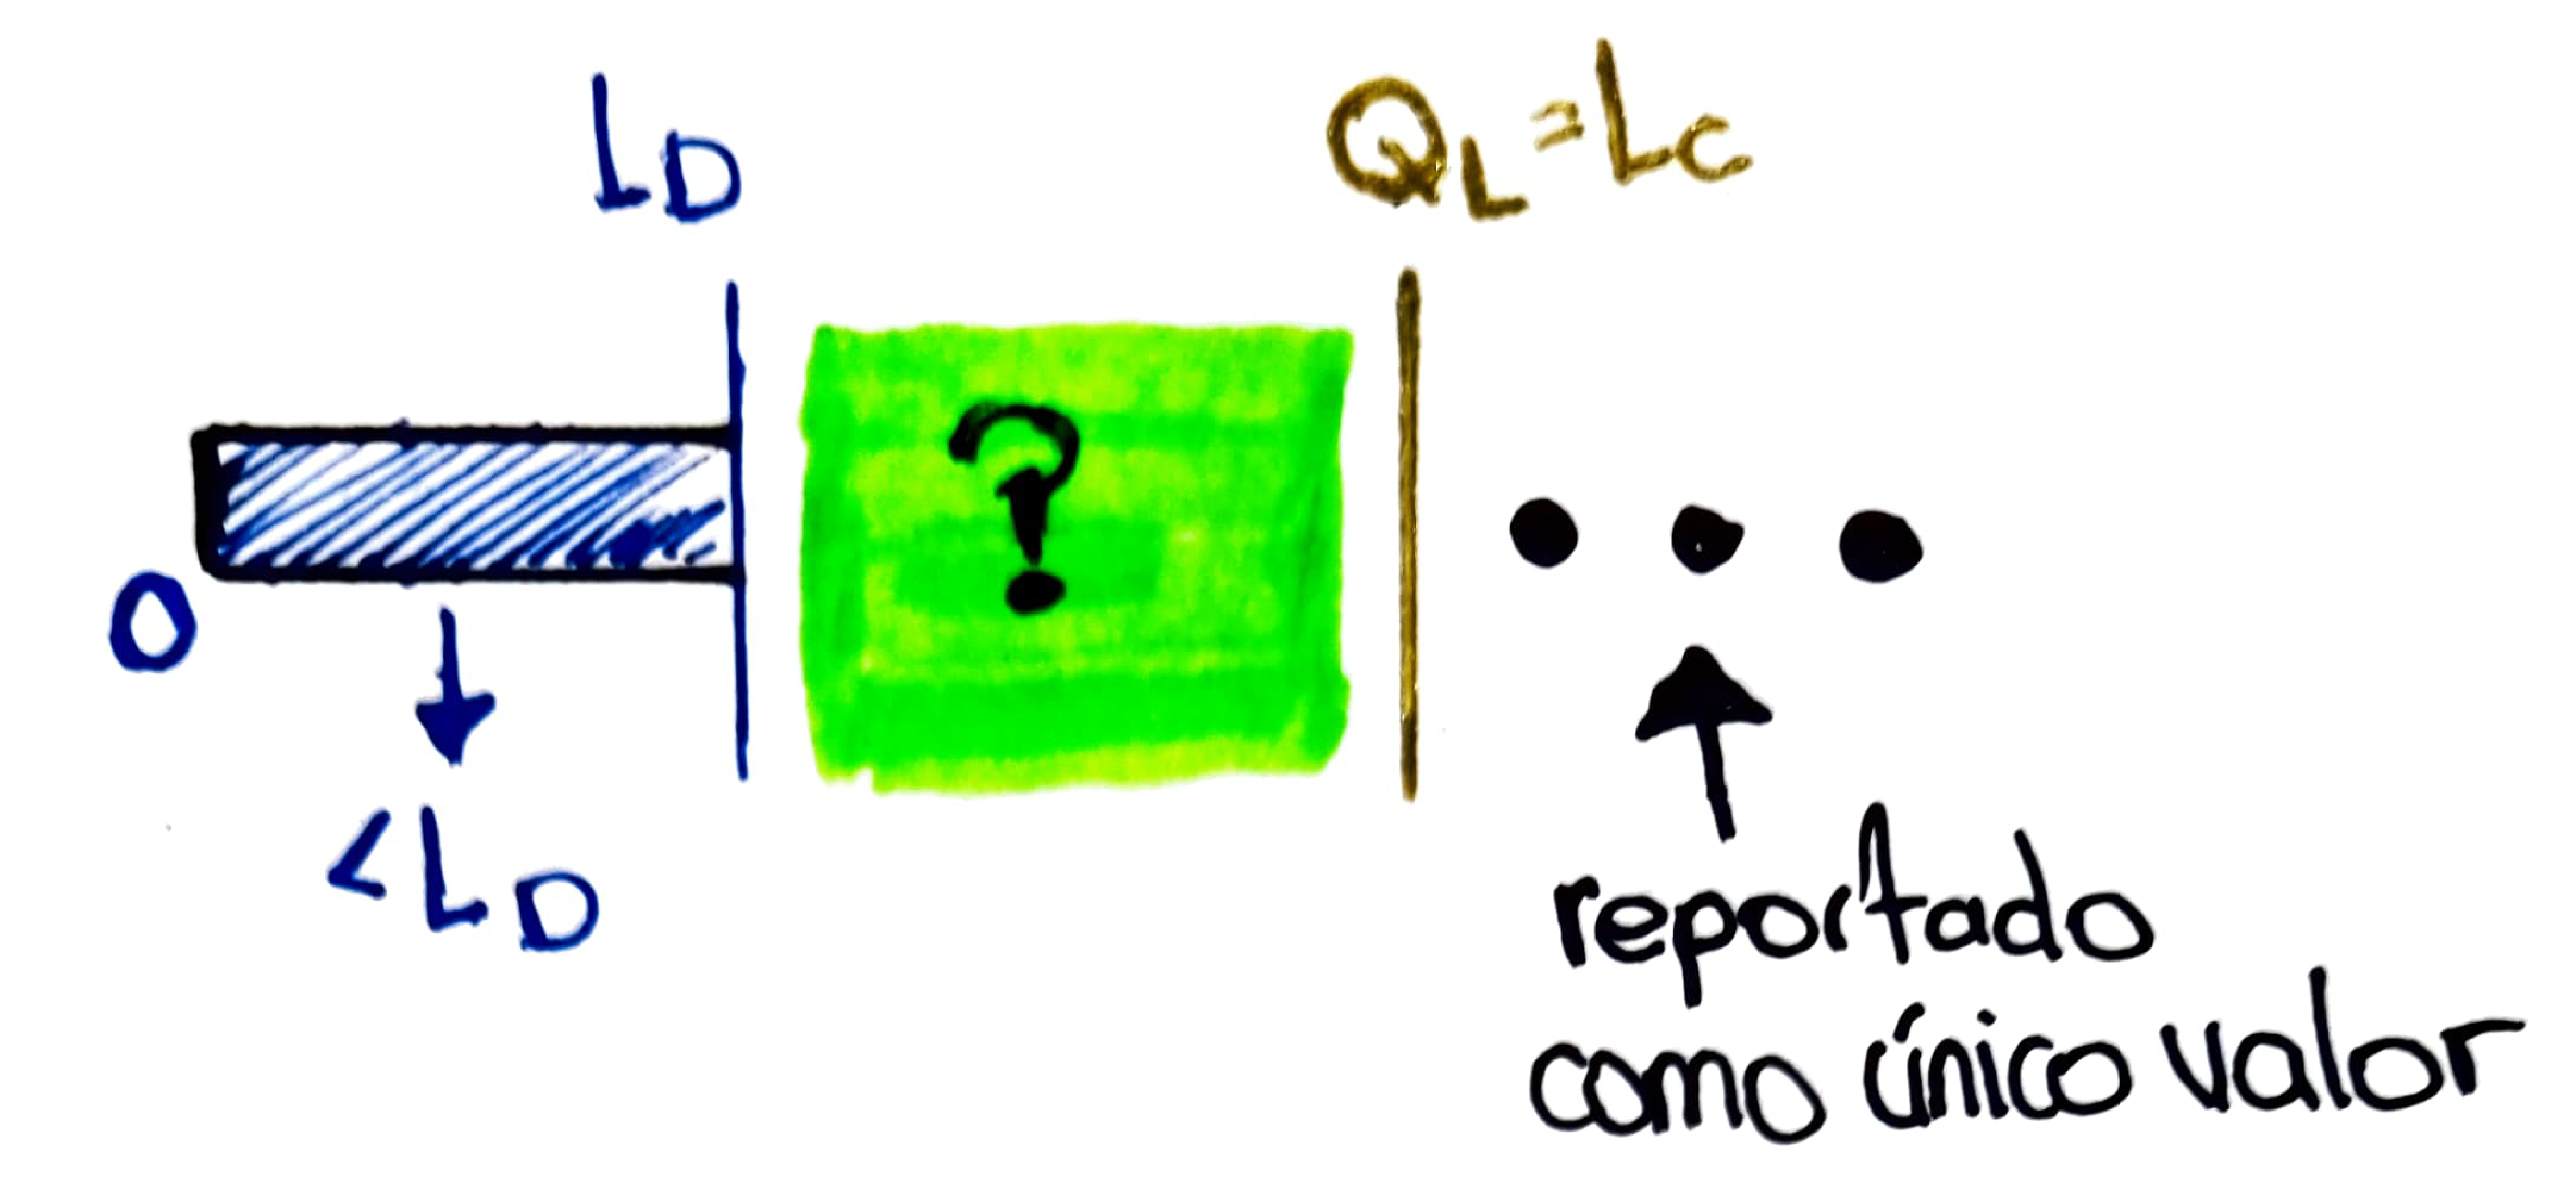 LD
QL=LC
?
0
<LD
reportado
como único valor